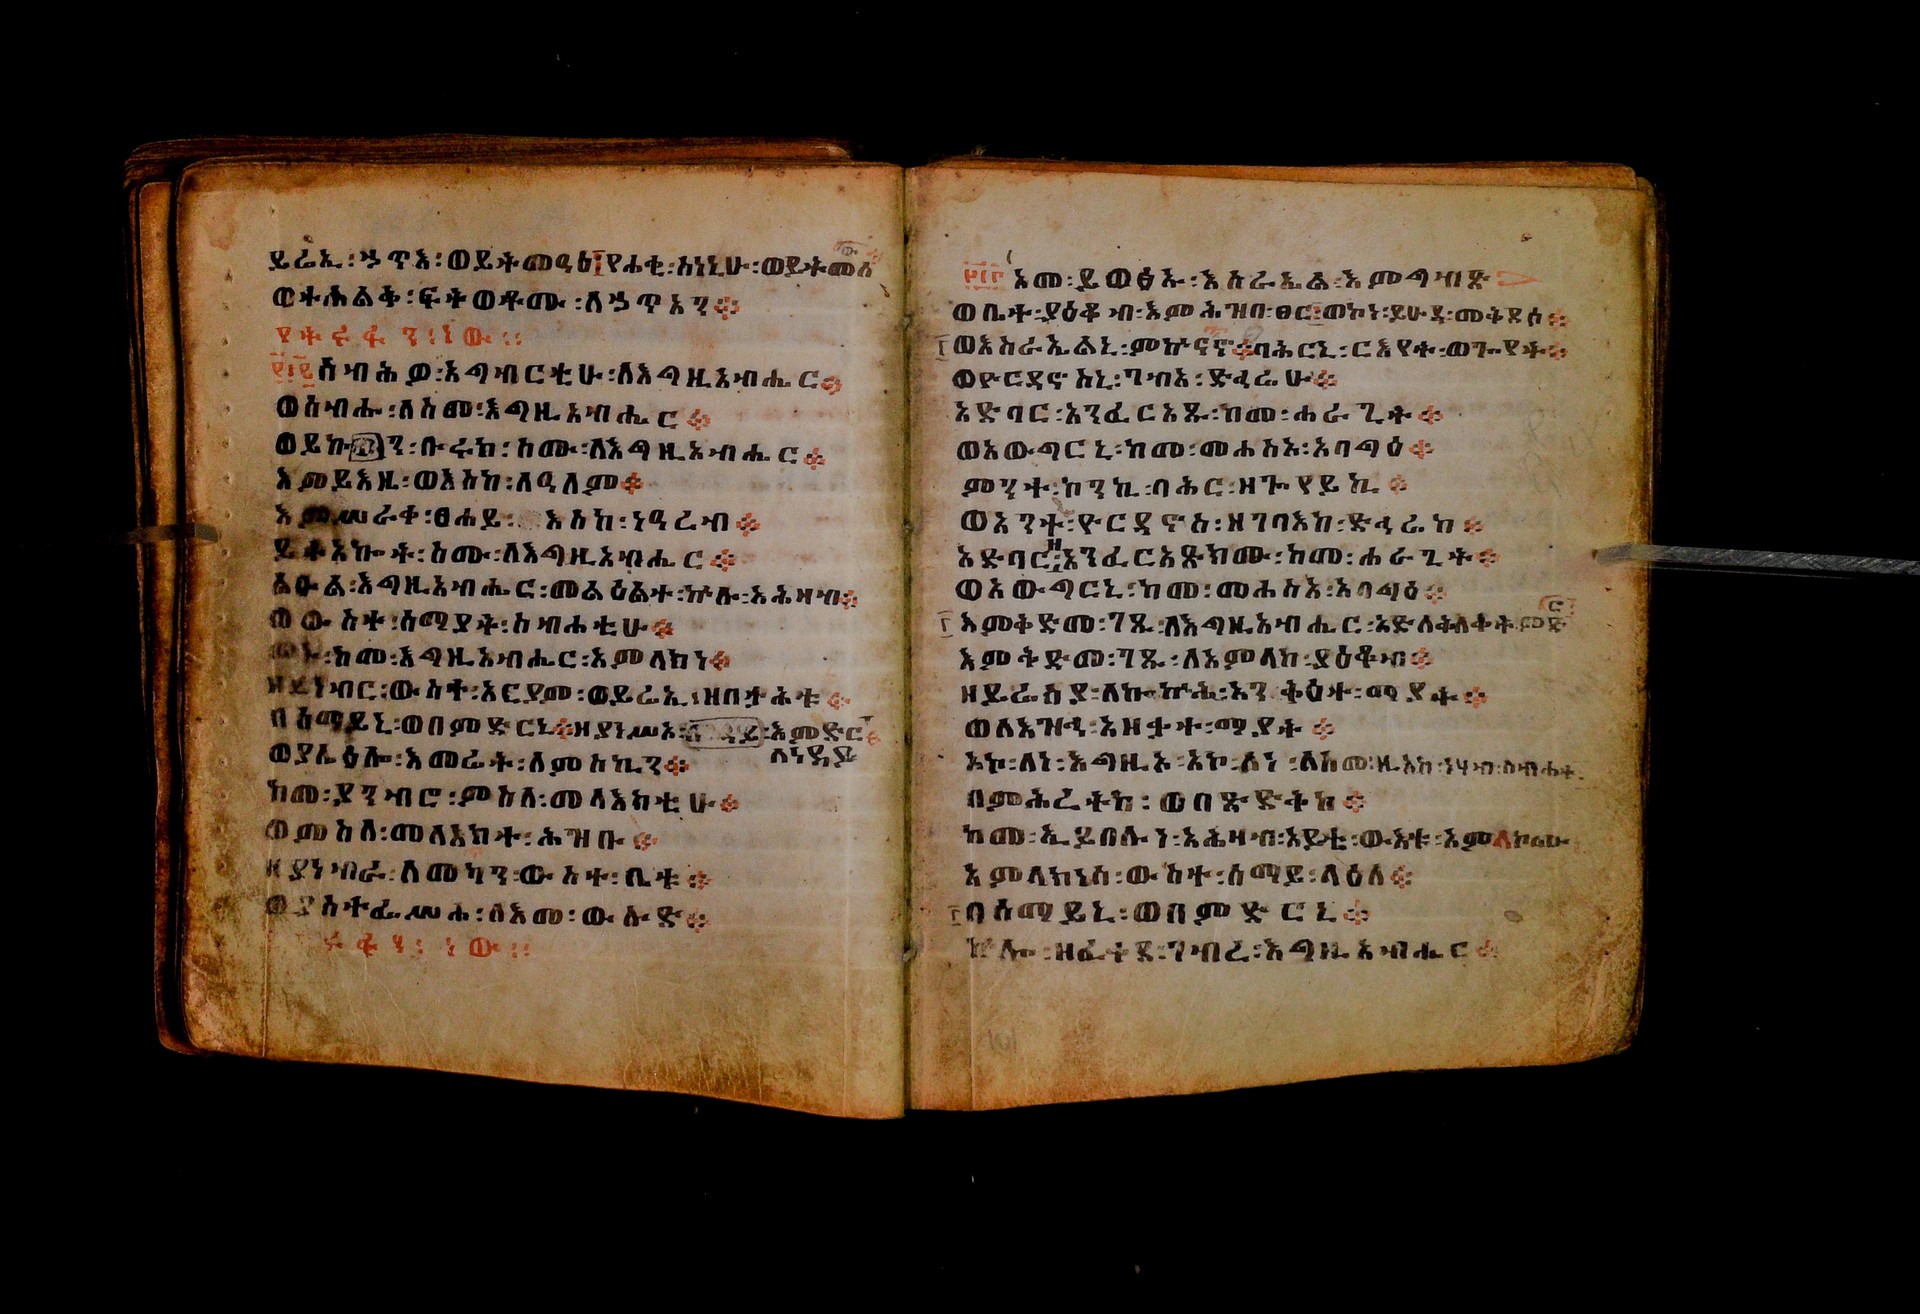 ይሬኢ፡ኃጥእ፡ወይትመዓዕ፡የሐቂ፡ስነኒሁ፡ወይትመሰው
ወተሐልቅ፡ፍትወቶሙ፡ለኃጥኣን።
፻፲፪ ሰብሕዎ፡አግብርቲሁ፡ለእግዚአብሔር።
ወሰብሑ፡ለስመ፡እግዚአብሔር።
ወይኩን፡ቡሩከ፡ስሙ፡ለእግዚአብሔር።
እምይእዜ፡ወእስከ፡ለዓለም።
እምሠራቀ፡ፀሐይ፡እስከ፡ነዓረብ።
ይትአኰት፡ስሙ፡ለእግዚአብሔር።
ልዑል፡እግዚአብሔር፡መልዕልተ፡ኵሉ፡አሕዛብ።
ወውስተ፡ሰማያት፡ስብሐቲሁ።
መኑ፡ከመ፡እግዚአብሔር፡አምላክነ።
ዘይነብር፡ውስተ፡አርያም፡ወይሬኢ፡ዘበታሕቱ።
በሰማይኒ፡ወበምድርኒ።ዘያነሥእ፡እምድር።
ለነዳይ
ወያሌዕሎ፡እመሬት፡ለምስኪን።
ከመ፡ያንብሮ፡ምስለ፡መላእክቲሁ።
ወምስለ፡መላእክተ፡ሕዝቡ።
ዘያነብራ፡ለመካን፡ውስተ፡ቤቱ።
ወያስተፌሥሐ፡ለእመ፡ውሉድ።
፻፲፫ አመ፡ይወፅኡ፡እስራኤል፡እምግብጽ
ወቤተ፡ያዕቆብ፡እምሕዝበ፡ፀር፡ወኮነ፡ይሁዳ፡መቅደሰ።
ወእስራኤልኒ፡ምኵናኖ።ባሕርኒ፡ርእየት፡ወጐየት።
ወዮርዳኖስኒ፡ግብአ፡ድኅሬሁ።
አድባር፡አንፈርአጹ፡ከመ፡ሐራጊት።
ወአውግርኒ፡ከመ፡መሐስአ፡አባግዕ።
ምንት፡ከንኪ፡ባሕር፡ዘጐየይኪ።
ወአንተ፡ዮርዳኖስ፡ዘገባእከ፡ድኅሬከ።
አድባርዘ፡አንፈርአጽክሙ፡ከመ፡ሐራጊት።
ወአውግርኒ፡ከመ፡መሐስአ፡አባግዕ።
እምቅድመ፡ገጹ፡ለእግዚአብሔር፡አድለቅለቀት፡ምድር
እምቅድመ፡ገጹ፡ለአምላከ፡ያዕቆብ።
ዘይሬስያ፡ለኰኵሕ፡አንቅዕተ፡ማያት።
ወለእዝኂ፡አዘቃተ፡ማያት።
አኮ፡ለነ፡እግዚኦ፡አኮ፡ለነ፡ለስመ፡ዚአከ፡ነሃብ፡ስብሐተ።
በምሕረትከ፡ወበጽድቅከ።
ከመ፡ኢይበሉነ፡አሕዛብ፡አይቴ፡ውእቱ፡አምላኮሙ
አምላክነሰ፡ውስተ፡ሰማይ፡ላዕለ።
በሰማይኒ፡ወበምድርኒ።
ኵሎ፡ዘፈተደ፡ገብረ፡እግዚአብሔር።